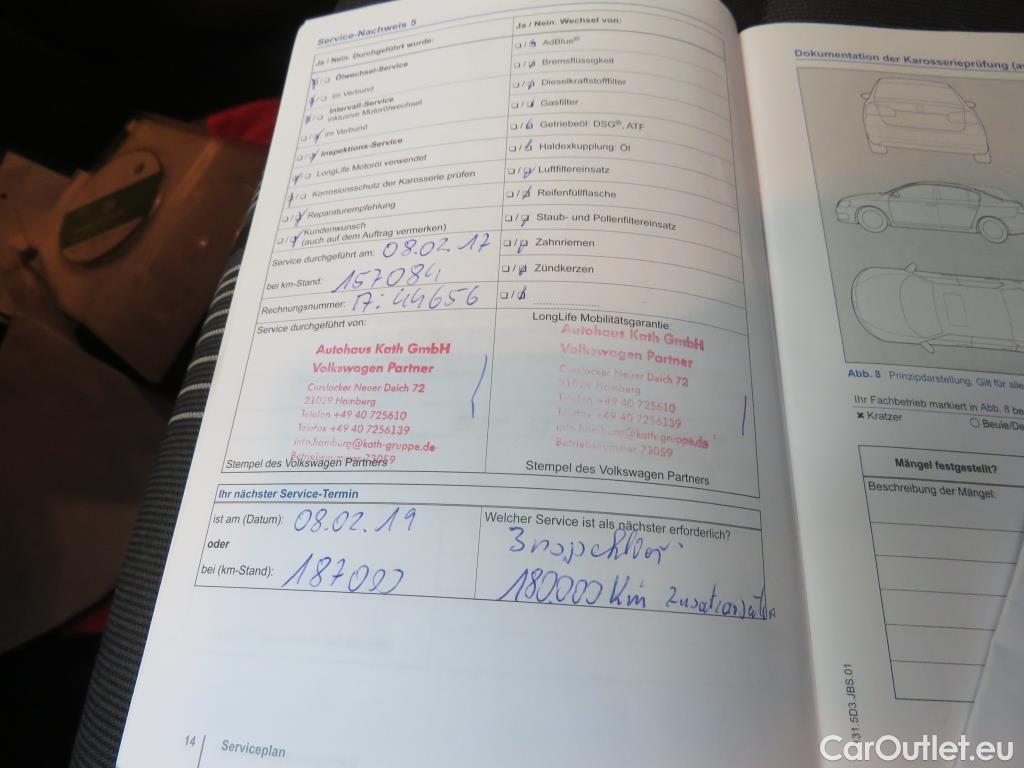 Service-Nachweis 5
Ja / Nein. Durchgeführt wurde:
Ölwechsel-Service
im Verbund
Intervall-Service
inklusive Motorölwechsel
im Verbund
Inspektions-Service
LongLife Motoröl verwendet
Korrosionsschutz der Karosserie prüfen
Reparaturempfehlung
Kundenwunsch
(auch auf dem Auftrag vermerken)
Service durchgeführt am: 08.02.17
bei km-Stand: 157084
Rechnungsnummer: 44656
Service durchgeführt von:
Autohaus Kath GmbH
Volkswagen Partner
Curslacker Neuer Deich 72
21029 Hamburg
Telefon +49 40 725610
Telefax +49 40 7256139
info.hamburg@kath-gruppe.de
Betriebsnummer 73059
Stempel des Volkswagen Partners
Ja / Nein. Wechsel von:
AdBlue®
Bremsflüssigkeit
Dieselkraftstofffilter
Gasfilter
Getriebeöl: DSG®, ATF
Haldexkupplung: Öl
Luftfiltereinsatz
Reifenfüllflasche
Staub- und Pollenfiltereinsatz
Zahnriemen
Zündkerzen
LongLife Mobilitätsgarantie:
Autohaus Kath GmbH
Volkswagen Partner
Curslacker Neuer Deich 72
21029 Hamburg
Telefon +49 40 725610
Telefax +49 40 7256139
info.hamburg@kath-gruppe.de
Betriebsnummer 73059
Stempel des Volkswagen Partners
Ihr nächster Service-Termin
ist am (Datum): 08.02.19
oder
bei (km-Stand): 187000
Welcher Service ist als nächster erforderlich?
180.000 Km
14 Serviceplan
Dokumentation der Karosserieprüfung (au
Abb. 8 Prinzipdarstellung. Gilt für alle
Ihr Fachbetrieb markiert in Abb. 8 be
× Kratzer
○ Beule/De
Mängel festgestellt?
Beschreibung der Mängel:
131.5D3.JBS.01
CarOutlet.eu